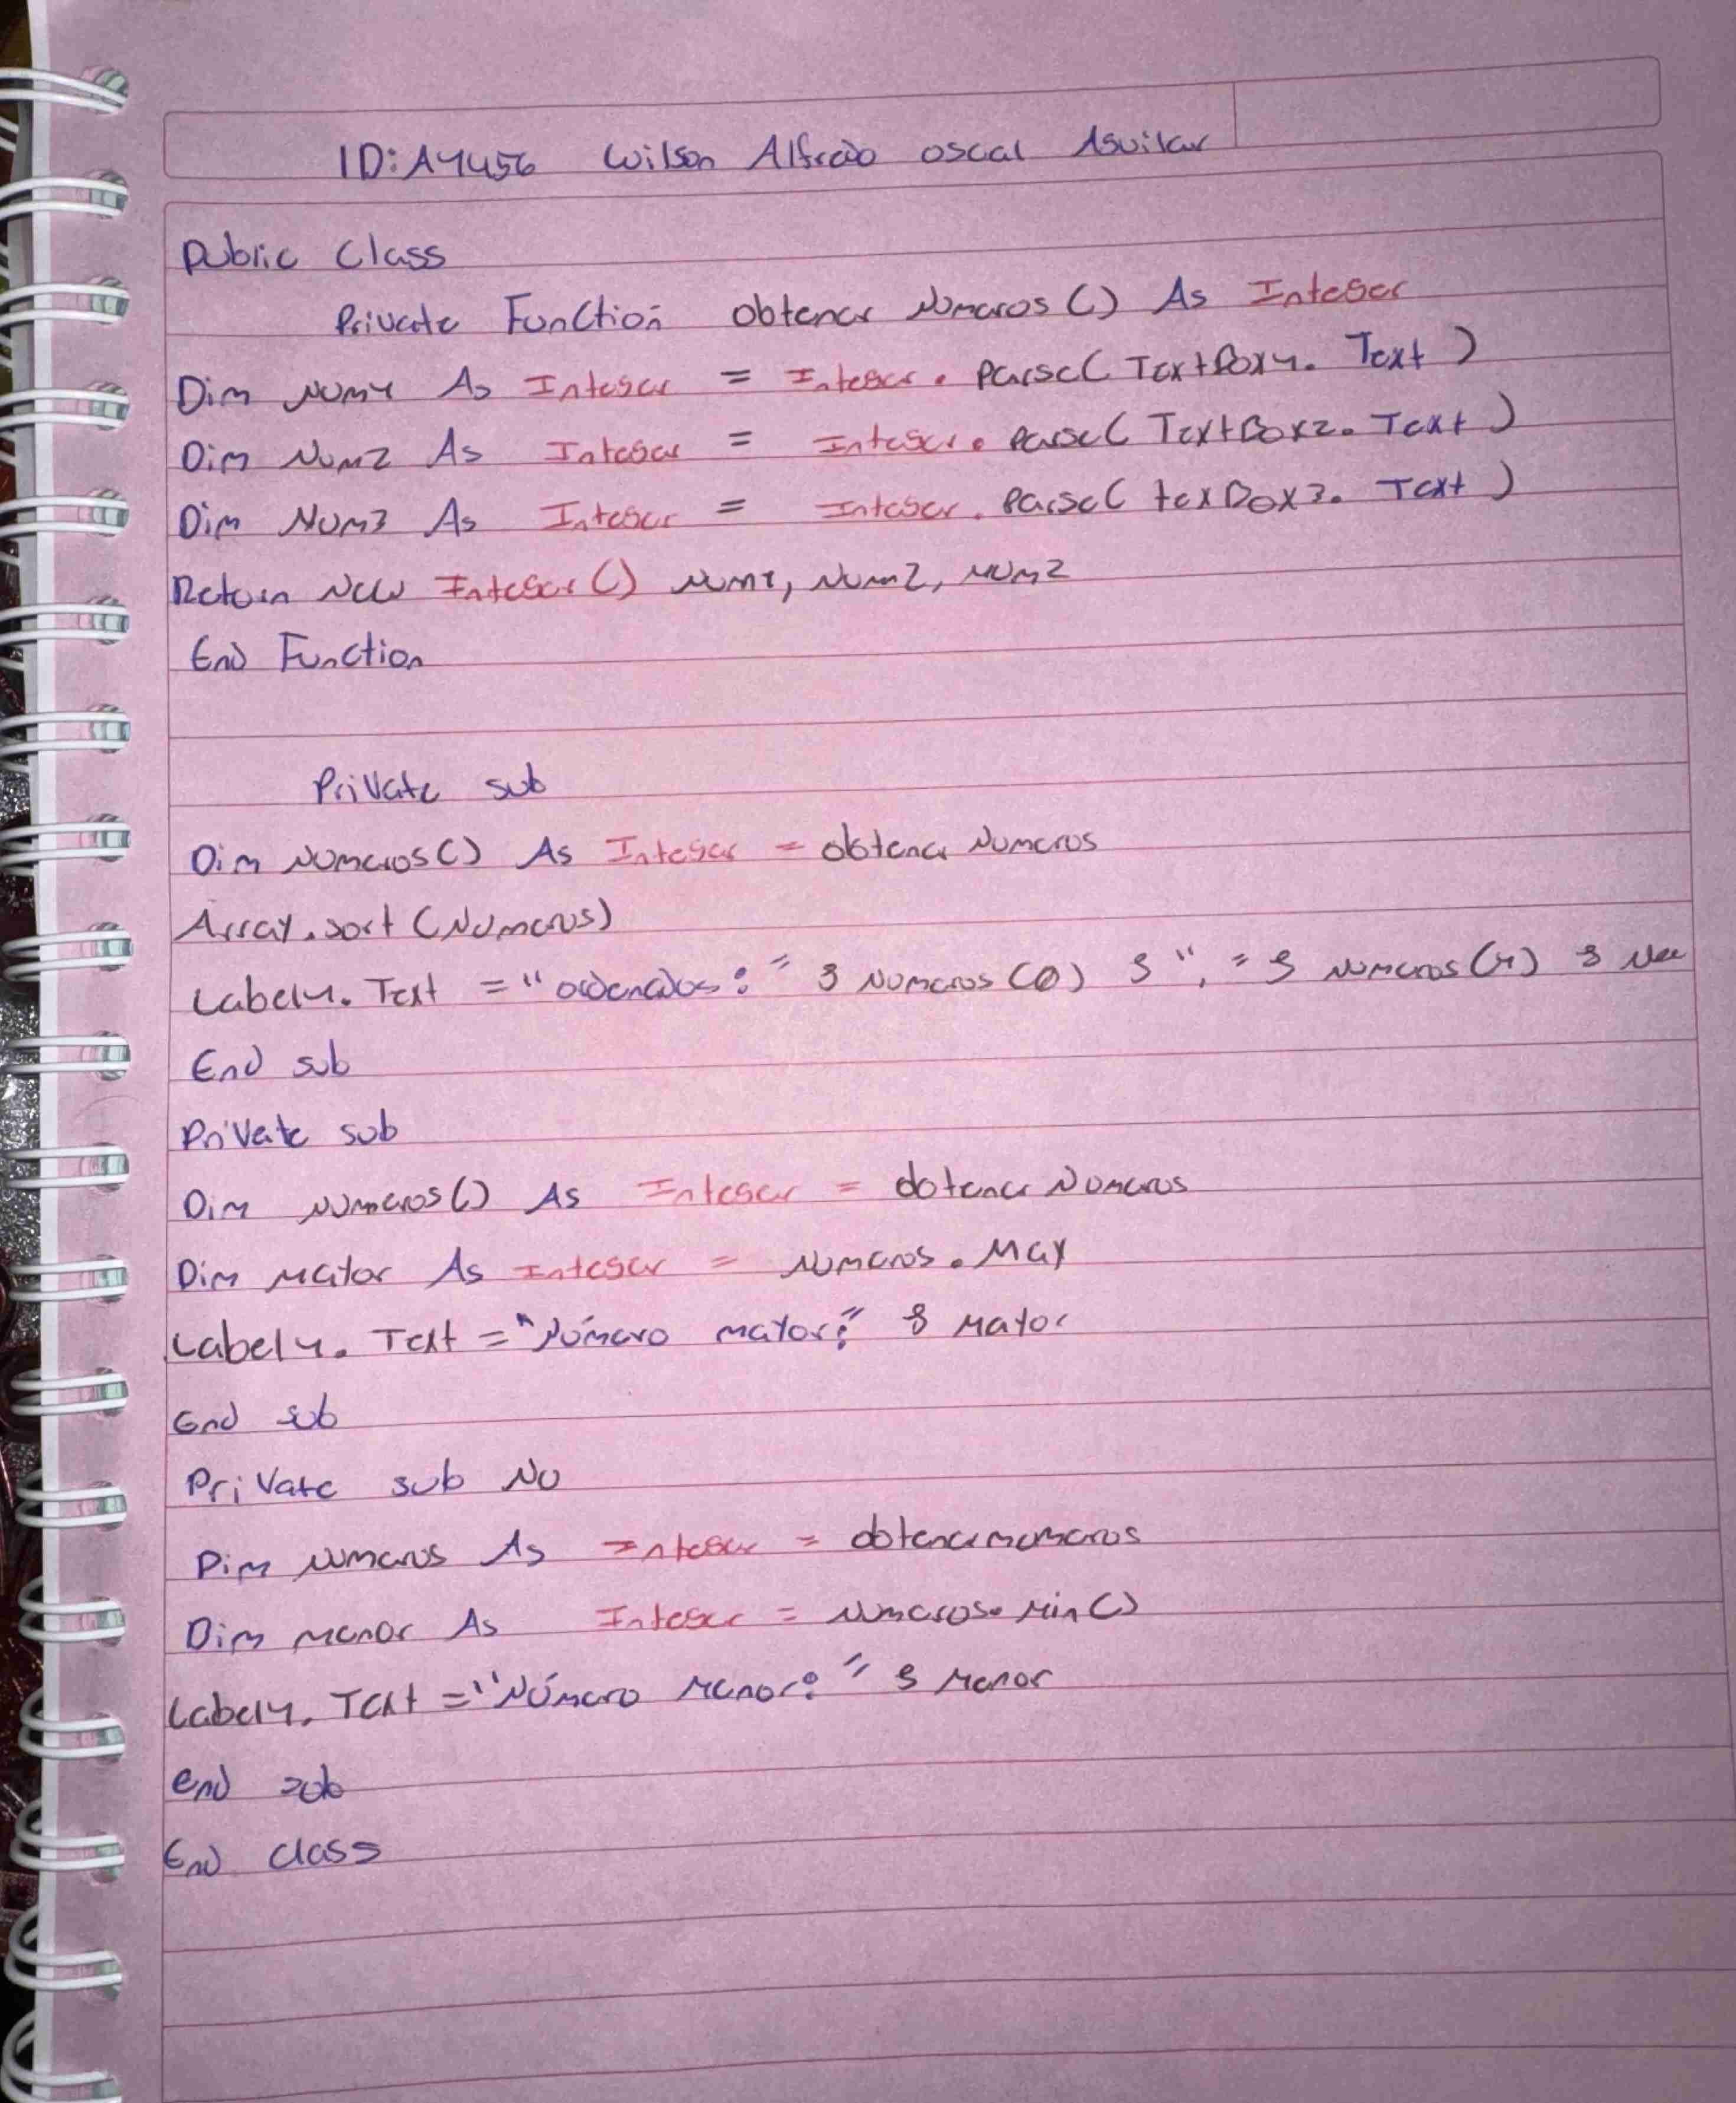 ID: A1456 Wilson Alfredo oscal Aguilar
Public Class
Private Function obtener Numeros () As Integer
Dim Num1 As Integer = Integer. Parse( TextBox1. Text )
Dim Num2 As Integer = Integer. Parse( TextBox2. Text )
Dim Num3 As Integer = Integer. Parse( texBox3. Text )
Return New Integer () Num1, Num2, Num2
End Function
Private sub
Dim Numeros() As Integer = obtener Numeros
Array.sort (Numeros)
Label1. Text = "ordenados: " & Numeros (0) & ", " & Numeros (1) &
End sub
Private sub
Dim Numeros() As Integer = obtener Numeros
Dim Mayor As Integer = Numeros. Max
Label1. Text = "Número mayor:" & Mayor
End sub
Private sub No
Dim Numeros As Integer = obtenernumeros
Dim menor As Integer = Numeros. Min()
Label1. Text = "Número Menor: " & Menor
end sub
End class